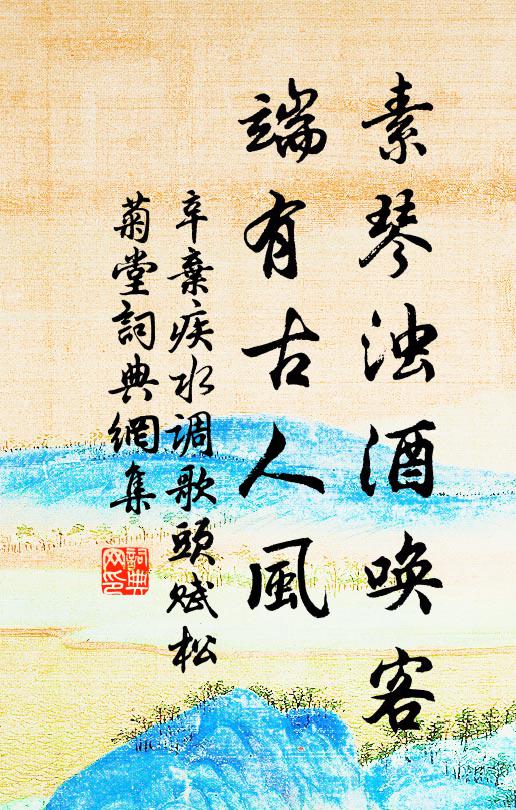 素琴浊酒唤客
端有古人風
辛棄疾水调歌頭赋松
菊堂詞典網集
詞典
网印